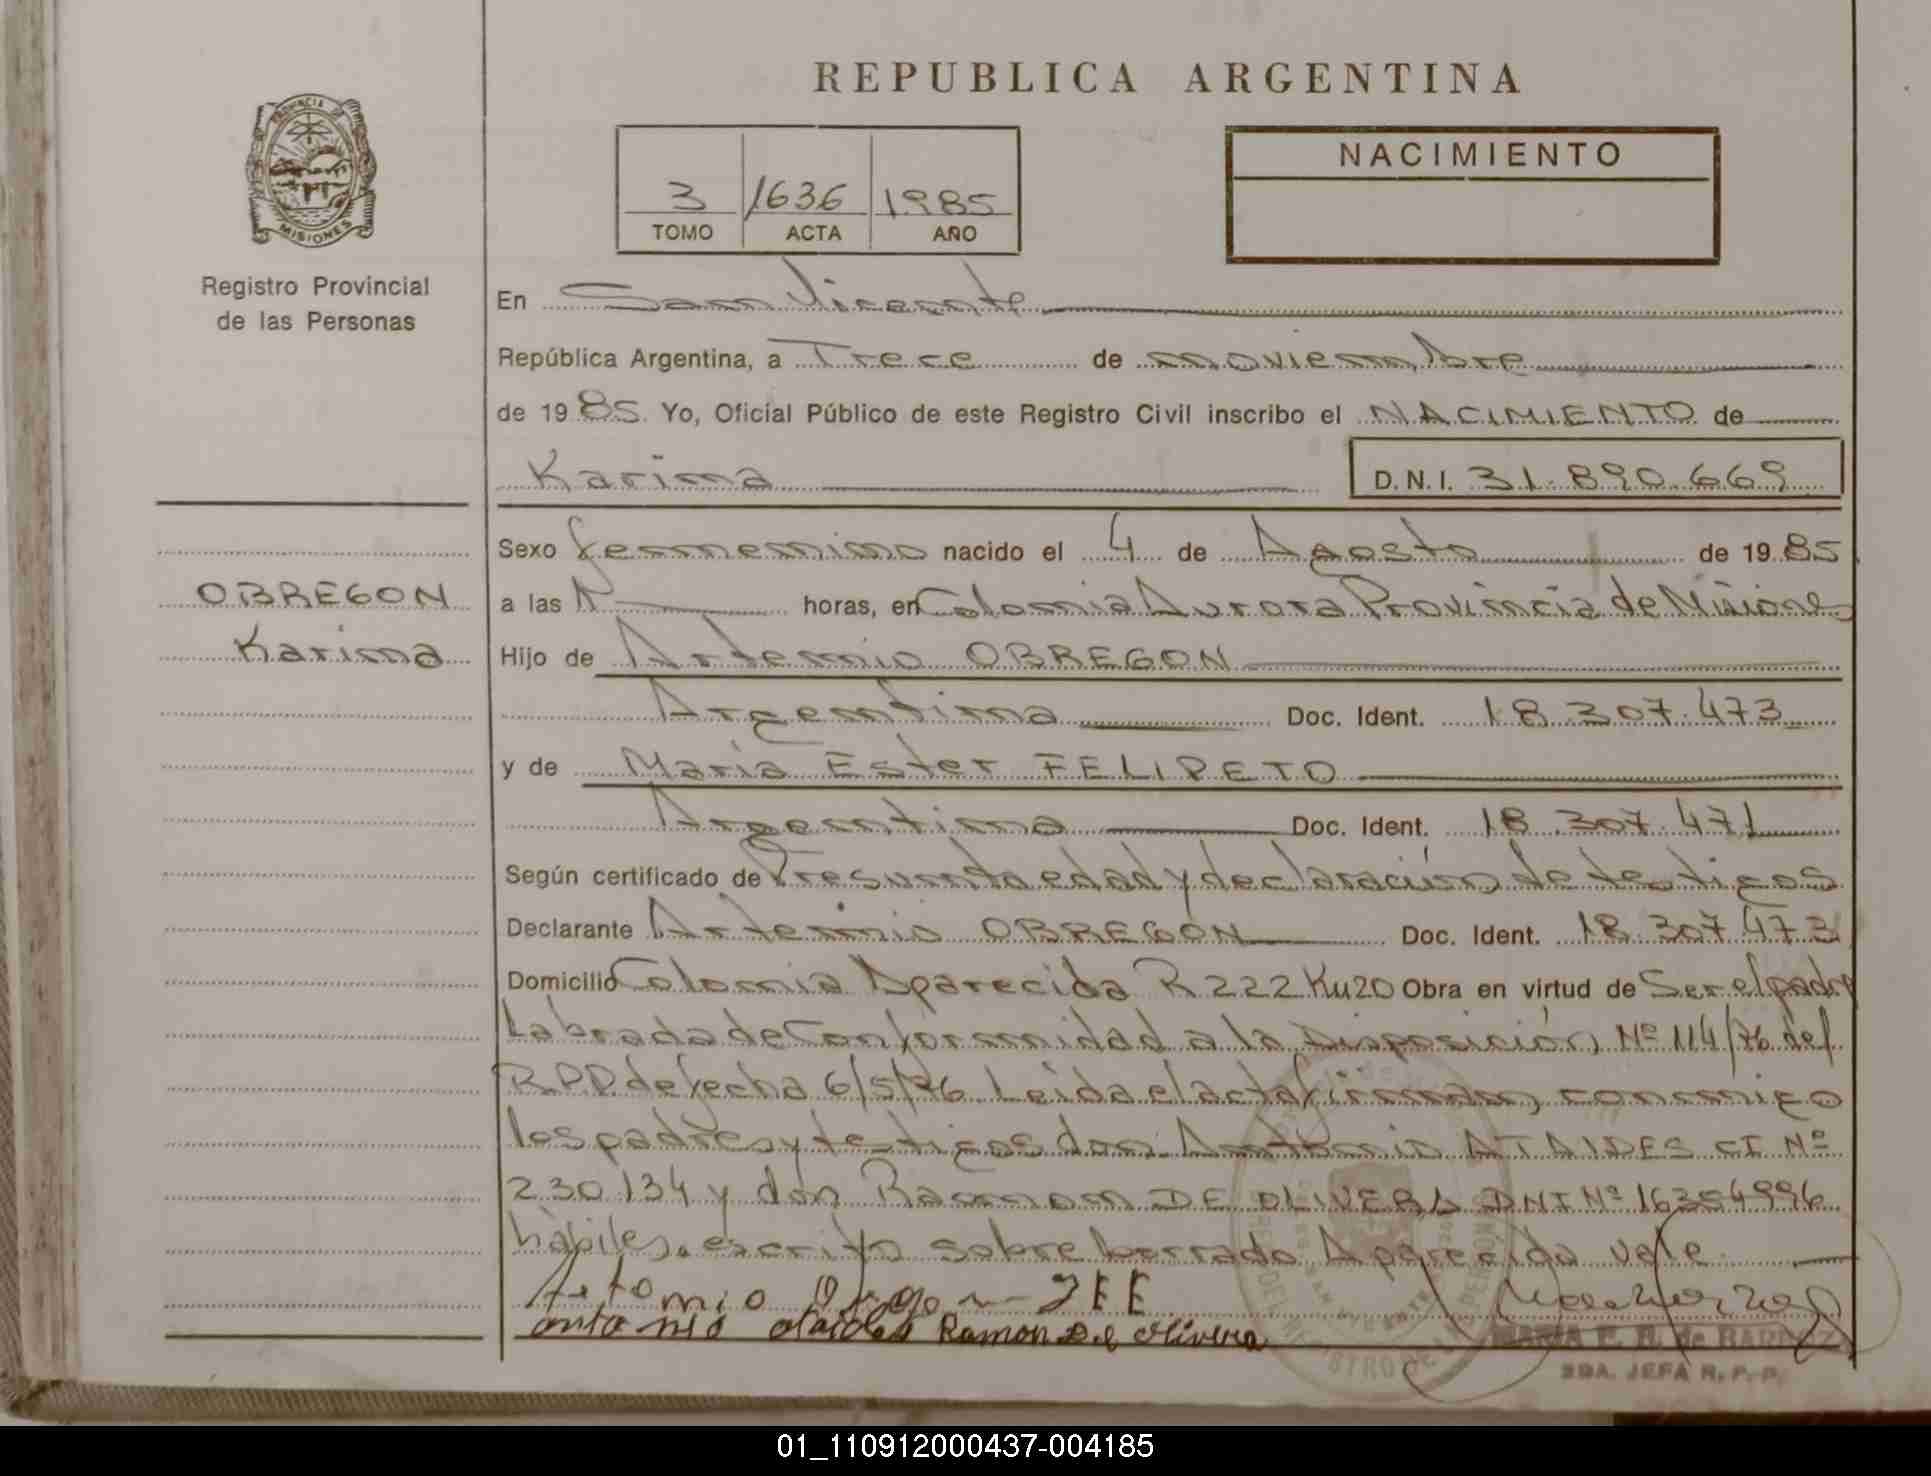 REPUBLICA ARGENTINA
PROVINCIA DE
MISIONES
Registro Provincial
de las Personas
3 1636 1985
TOMO ACTA AÑO
NACIMIENTO
En San Vicente
República Argentina, a Trece de noviembre
de 1985. Yo, Oficial Público de este Registro Civil inscribo el NACIMIENTO de
Karina
D.N.I. 31.890.669
OBREGON
Karina
Sexo femenino nacido el 4 de Agosto de 1985
a las horas, en Colonia Aurora Provincia de Misiones
Hijo de Artemio OBREGON
Argentina Doc. Ident. 18.307.473
y de Maria Ester FELIPETO
Argentina Doc. Ident. 18.307.471
Según certificado de Presunta edad y declaración de testigos
Declarante Artemio OBREGON Doc. Ident. 18.307.473
Domicilio Colonia Aparecida R 222 Ku20 Obra en virtud de Ser el padre
Labrada de Conformidad a la Disposición Nº 114/76 del
R.P.P. de fecha 6/5/76. Leida el acta firman conmigo
los padres y testigos don Antonio ATAIDES CI Nº
230.134 y don Ramon DE OLIVERA DNI Nº 16354996
hàbiles. escrito sobre borrado Aparecida vale
JEE
antonio Ramon De Olivera
MARIA E. R. de
2DA. JEFA R. P. P.
01_110912000437-004185